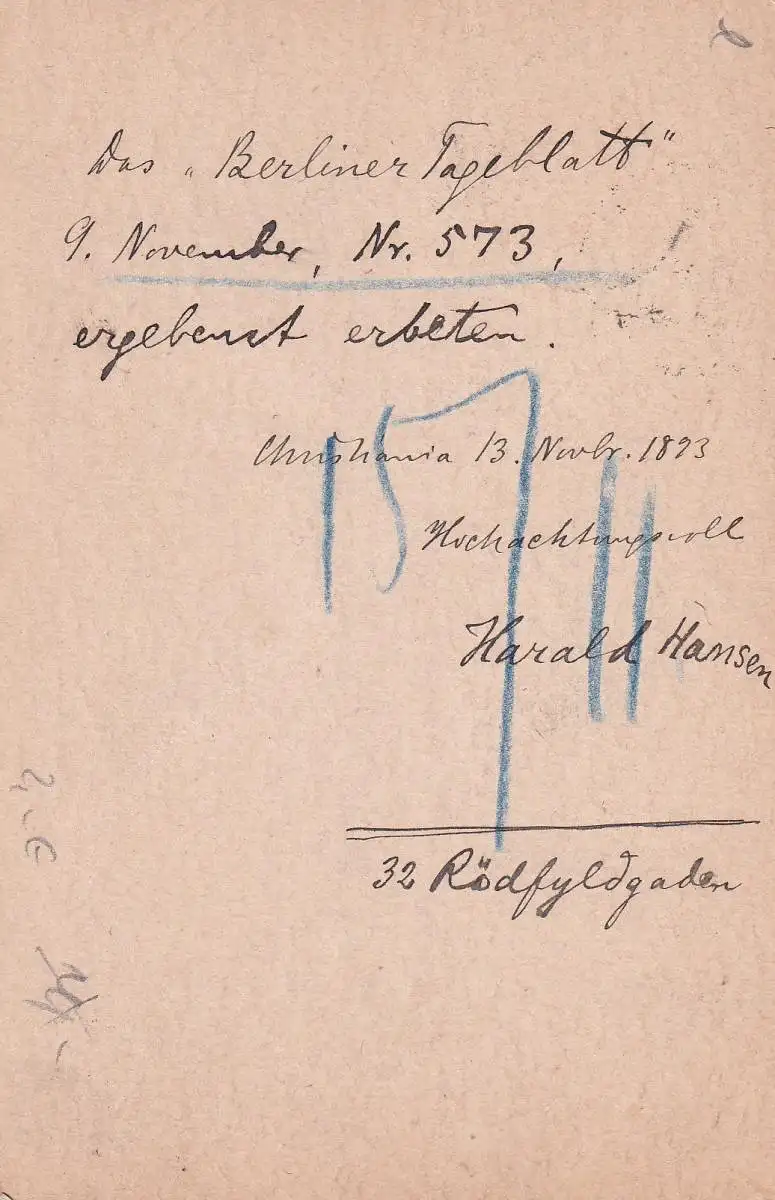 Das „Berliner Tageblatt"
9. November, Nr. 573,
ergebenst erbeten.
Christiania 13. Novbr. 1893
Hochachtungsvoll
Harald Hansen
32 Rödfyldgaden
15/11